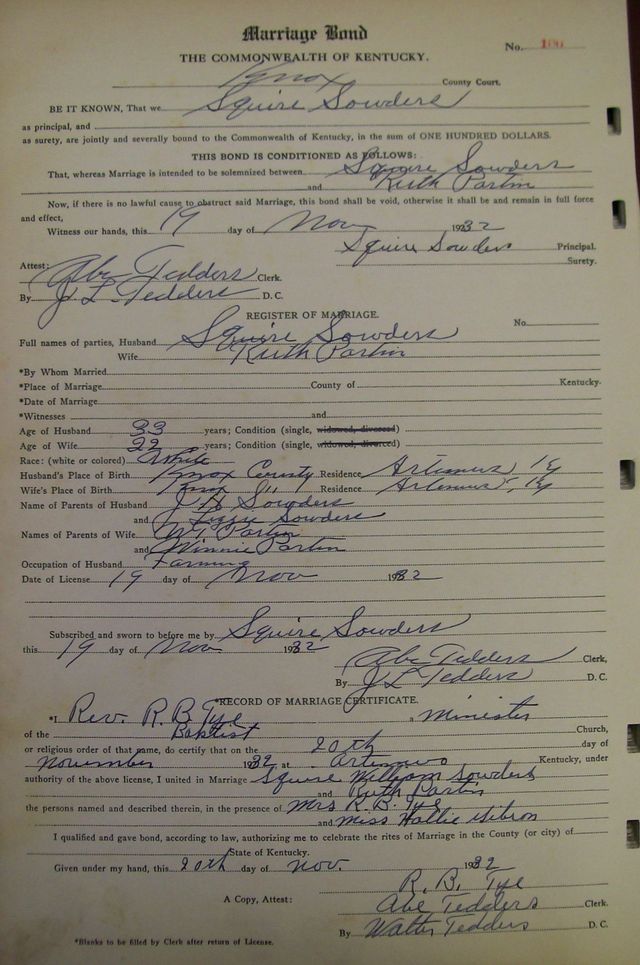 Marriage Bond
No. 100
THE COMMONWEALTH OF KENTUCKY.
Knox County Court.
BE IT KNOWN, That we Squire Sowders
as principal, and
as surety, are jointly and severally bound to the Commonwealth of Kentucky, in the sum of ONE HUNDRED DOLLARS.
THIS BOND IS CONDITIONED AS FOLLOWS:
That, whereas Marriage is intended to be solemnized between Squire Sowders
and Ruth Partin
Now, if there is no lawful cause to obstruct said Marriage, this bond shall be void, otherwise it shall be and remain in full force
and effect,
Witness our hands, this 19 day of Nov 1932
Squire Sowders Principal.
Surety.
Attest: Abe Tedders Clerk.
By J L Tedders D. C.
REGISTER OF MARRIAGE.
No.
Full names of parties, Husband Squire Sowders
Wife Ruth Partin
*By Whom Married
*Place of Marriage County of Kentucky.
*Date of Marriage
*Witnesses and
Age of Husband 33 years; Condition (single, widowed, divorced)
Age of Wife 22 years; Condition (single, widowed, divorced)
Race: (white or colored) White
Husband's Place of Birth Knox County Residence Artemus, Ky
Wife's Place of Birth Knox " Residence Artemus, Ky
Name of Parents of Husband J H Sowders
and Lizzie Sowders
Names of Parents of Wife W T Partin
and Minnie Partin
Occupation of Husband Farming
Date of License 19 day of Nov 1932
Subscribed and sworn to before me by Squire Sowders
this 19 day of Nov 1932
Abe Tedders Clerk,
By J L Tedders D. C.
*RECORD OF MARRIAGE CERTIFICATE.
*I, Rev. R. B. Tye a Minister
of the Baptist Church,
or religious order of that name, do certify that on the 20th day of
November 1932 at Artemus Kentucky, under
authority of the above license, I united in Marriage Squire William Sowders
and Ruth Partin
the persons named and described therein, in the presence of Mrs R. B. Tye
and Miss Hallie Gibson
I qualified and gave bond, according to law, authorizing me to celebrate the rites of Marriage in the County (or city) of
State of Kentucky.
Given under my hand, this 20th day of Nov. 1932
R. B. Tye
A Copy, Attest: Abe Tedders Clerk.
By Walter Tedders D. C.
*Blanks to be filled by Clerk after return of License.